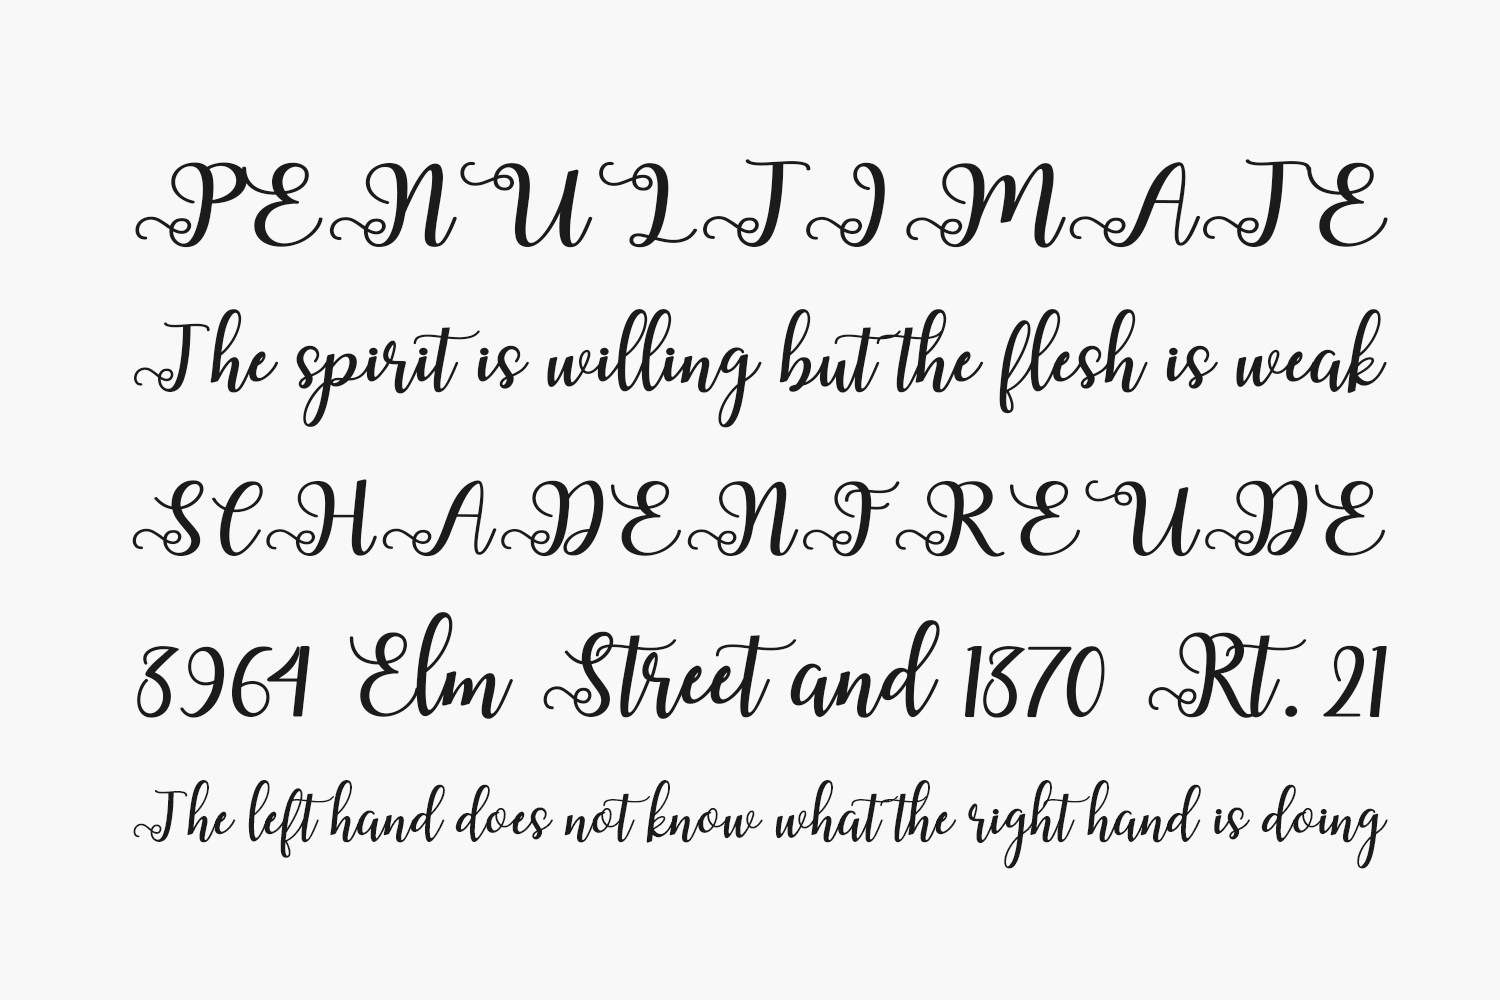 PENULTIMATE
The spirit is willing but the flesh is weak
SCHADENFREUDE
8964 Elm Street and 1870 Rt. 21
The left hand does not know what the right hand is doing